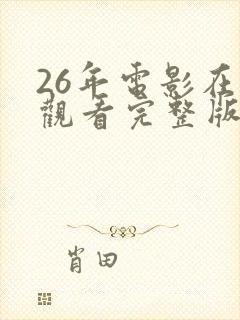 26年电影在
觀看完整版
肖田